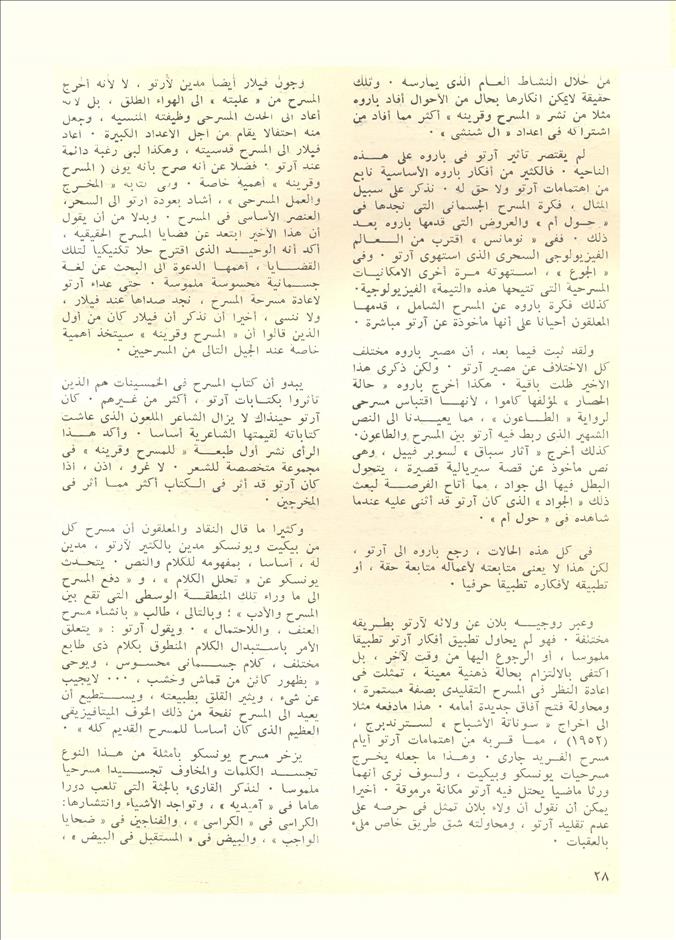 من خلال النشاط العـام الذى يمارسه ٠ وتلك
حقيقة لايمكن انكارها بحال من الأحوال أفاد باروه
مثلا من نشر « المسرح وقرينه » أكثر مما أفاد من
اشتراكه فى اعداد « آل شنشى » ٠
لم يقتصر تأثير آرتو فى باروه على هـــذه
الناحية ٠ فالكثير من أفكار باروه الأساسية نابع
من اهتمامات آرتو ولا حق له ٠ نذكر على سبيل
المثال ، فكرة المسرح الجسمانى التى نجدها فى
« حـول أم » والعروض التى قدمها باروه بعـد
ذلك ٠ ففى « نومانس » اقترب من العـــالم
الفيزيولوجى السحرى الذى استهوى آرتو ٠ وفى
« الجوع » ، استهوته مـرة أخرى الامكانيـات
المسرحية التى تتيحها هذه «التيمة» الفيزيولوجية٠
كذلك فكرة باروه عن المسرح الشامل ، قدمهـا
المعلقون أحيانا على أنها مأخوذة عن آرتو مباشرة ٠
ولقد ثبت فيما بعد ، أن مصير باروه مختلف
كل الاختلاف عن مصير آرتو ٠ ولكن ذكرى هذا
الأخير ظلت باقية ٠ هكذا أخرج باروه « حالة
الحصار » لمؤلفها كاموا ، لأنهــا اقتباس مسرحى
لرواية « الطــاعون » ، مما يعيـدنا الى النص
الشهير الذى ربط فيه آرتو بين المسرح والطاعون٠
كذلك أخرج « آثار سباق » لسوبر فييل ، وهى
نص مأخوذ عن قصة سيريالية قصيرة ، يتحول
البطل فيها الى جواد ، مما أتاح الفرصــة لبعث
ذلك « الجواد » الذى كان آرتو قد أثنى عليه عندما
شاهده فى « حول أم » ٠
فى كل هذه الحالات ، رجع باروه الى آرتو ،
لكن هذا لا يعنى متابعته لأعماله متابعة حقة ، أو
تطبيقه لأفكاره تطبيقا حرفيا ٠
وعبر روجيـــه بلان عن ولائه لآرتو بطـريقه
مختلفة ٠ فهو لم يحاول تطبيق أفكار آرتو تطبيقا
ملموسا ، أو الرجوع اليها من وقت لآخر ، بل
اكتفى بالالتزام بحالة ذهنية معينة ، تمثلت فى
اعادة النظر فى المسرح التقليدى بصفة مستمرة ،
ومحاولة فتح آفاق جديدة أمامه ٠ هذا مادفعه مثلا
الى اخراج « سوناتة الأشباح » لستـرندبرج ،
(١٩٥٢) ، ممـا قـربه من اهتمامات آرتو أيام
مسرح الفـريد جارى ٠ وهـذا ما جعله يخـرج
مسرحيات يونسكو وبيكيت ، ولسوف نرى أنهما
ورثا ماضيا يحتل فيه آرتو مكانة مرموقة ٠ أخيرا
يمكن أن نقول أن ولاء بلان تمثل فى حرصه على
عدم تقليد آرتو ، ومحاولته شق طريق خاص ملىء
بالعقبات ٠
وجون فيلار أيضا مدين لآرتو ، لا لأنه أخرج
المسرح من « علبته » الى الهواء الطلق ، بل لأنه
أعاد الى الحدث المسرحى وظيفته المنسيه ، وجعل
منه احتفالا يقام من أجل الأعداد الكبيرة ٠ أعاد
فيلار الى المسرح قدسيته ، وهكذا لبى رغبة دائمة
عند آرتو ٠ فضلا عن أنه صرح بأنه يولى ( المسرح
وقرينه » أهمية خاصة ٠ وفى كتابه « المخـرج
والعمل المسرحى » ، أشاد بعودة آرتو الى السحر،
العنصر الأساسى فى المسرح ٠ وبدلا من أن يقول
أن هذا الأخير ابتعد عن قضايا المسرح الحقيقيه ،
أكد أنه الوحيـد الذى اقترح حلا تكنيكيا لتلك
القضــايا ، أهمها الدعوة الى البحث عن لغــة
جسـمانية محسوسة ملموسة ٠ حتى عداء آرتو
لاعادة مسرحة المسرح ، نجد صداها عند فيلار ،
ولا ننسى ، أخيرا أن نذكر أن فيلار كان من أول
الذين قالوا أن « المسرح وقرينه » سيتخذ أهمية
خاصة عند الجيل التالى من المسرحيين ٠
يبدو أن كتاب المسرح فى الخمسينات هم الذين
تأثروا بكتـابات آرتو ، أكثر من غيـرهم ٠ كان
آرتو حينذاك لا يزال الشاعر الملعون الذى عاشت
كتاباته لقيمتها الشاعرية أساسا ٠ وأكد هــذا
الرأى نشر أول طبعـــة « للمسرح وقرينه » فى
مجموعة متخصصة للشعر ٠ لا غرو ، اذن ، اذا
كان آرتو قد أثر فى الكتاب أكثر ممـا أثر فى
المخرجين ٠
وكثيرا ما قال النقاد والمعلقون أن مسرح كل
من بيكيت ويونسكو مدين بالكثير لآرتو ، مدين
له ، أساسا ، بمفهومه للكلام والنص ٠ يتحــدث
يونسكو عن « تحلل الكلام » ، و « دفع المسرح
الى ما وراء تلك المنطقــة الوسطى التى تقع بين
المسرح والأدب » ؛ وبالتالى ، طالب « بانشاء مسرح
العنف ، واللاحتمال » ٠ ويقول آرتو : « يتعلق
الأمر باسـتبدال الكلام المنطوق بكلام ذى طابع
مختلف ، كلام جســمانى محسـوس ، ويوحى
« بظهور كائن من قماش وخشب ، ٠٠٠ لايجيب
عن شىء ، ويثير القلق بطبيعته ، ويســتطيع أن
يعيد الى المسرح نفحة من ذلك الخوف الميتافيزيقى
العظيم الذى كان أساسا للمسرح القديم كله » ٠
يزخر مسرح يونسكو بأمثلة من هـذا النوع
تجســد الكلمات والمخاوف تجســيدا مسرحيا
ملموسا ٠ لنذكر القارىء بالجثة التى تلعب دورا
هاما فى « آميديه » ، وتواجد الأشياء وانتشارها:
الكراسى فى « الكراسى » ، والفناجين فى « ضحايا
الواجب » ، والبيض فى « المستقبل فى البيض » ،
٢٨